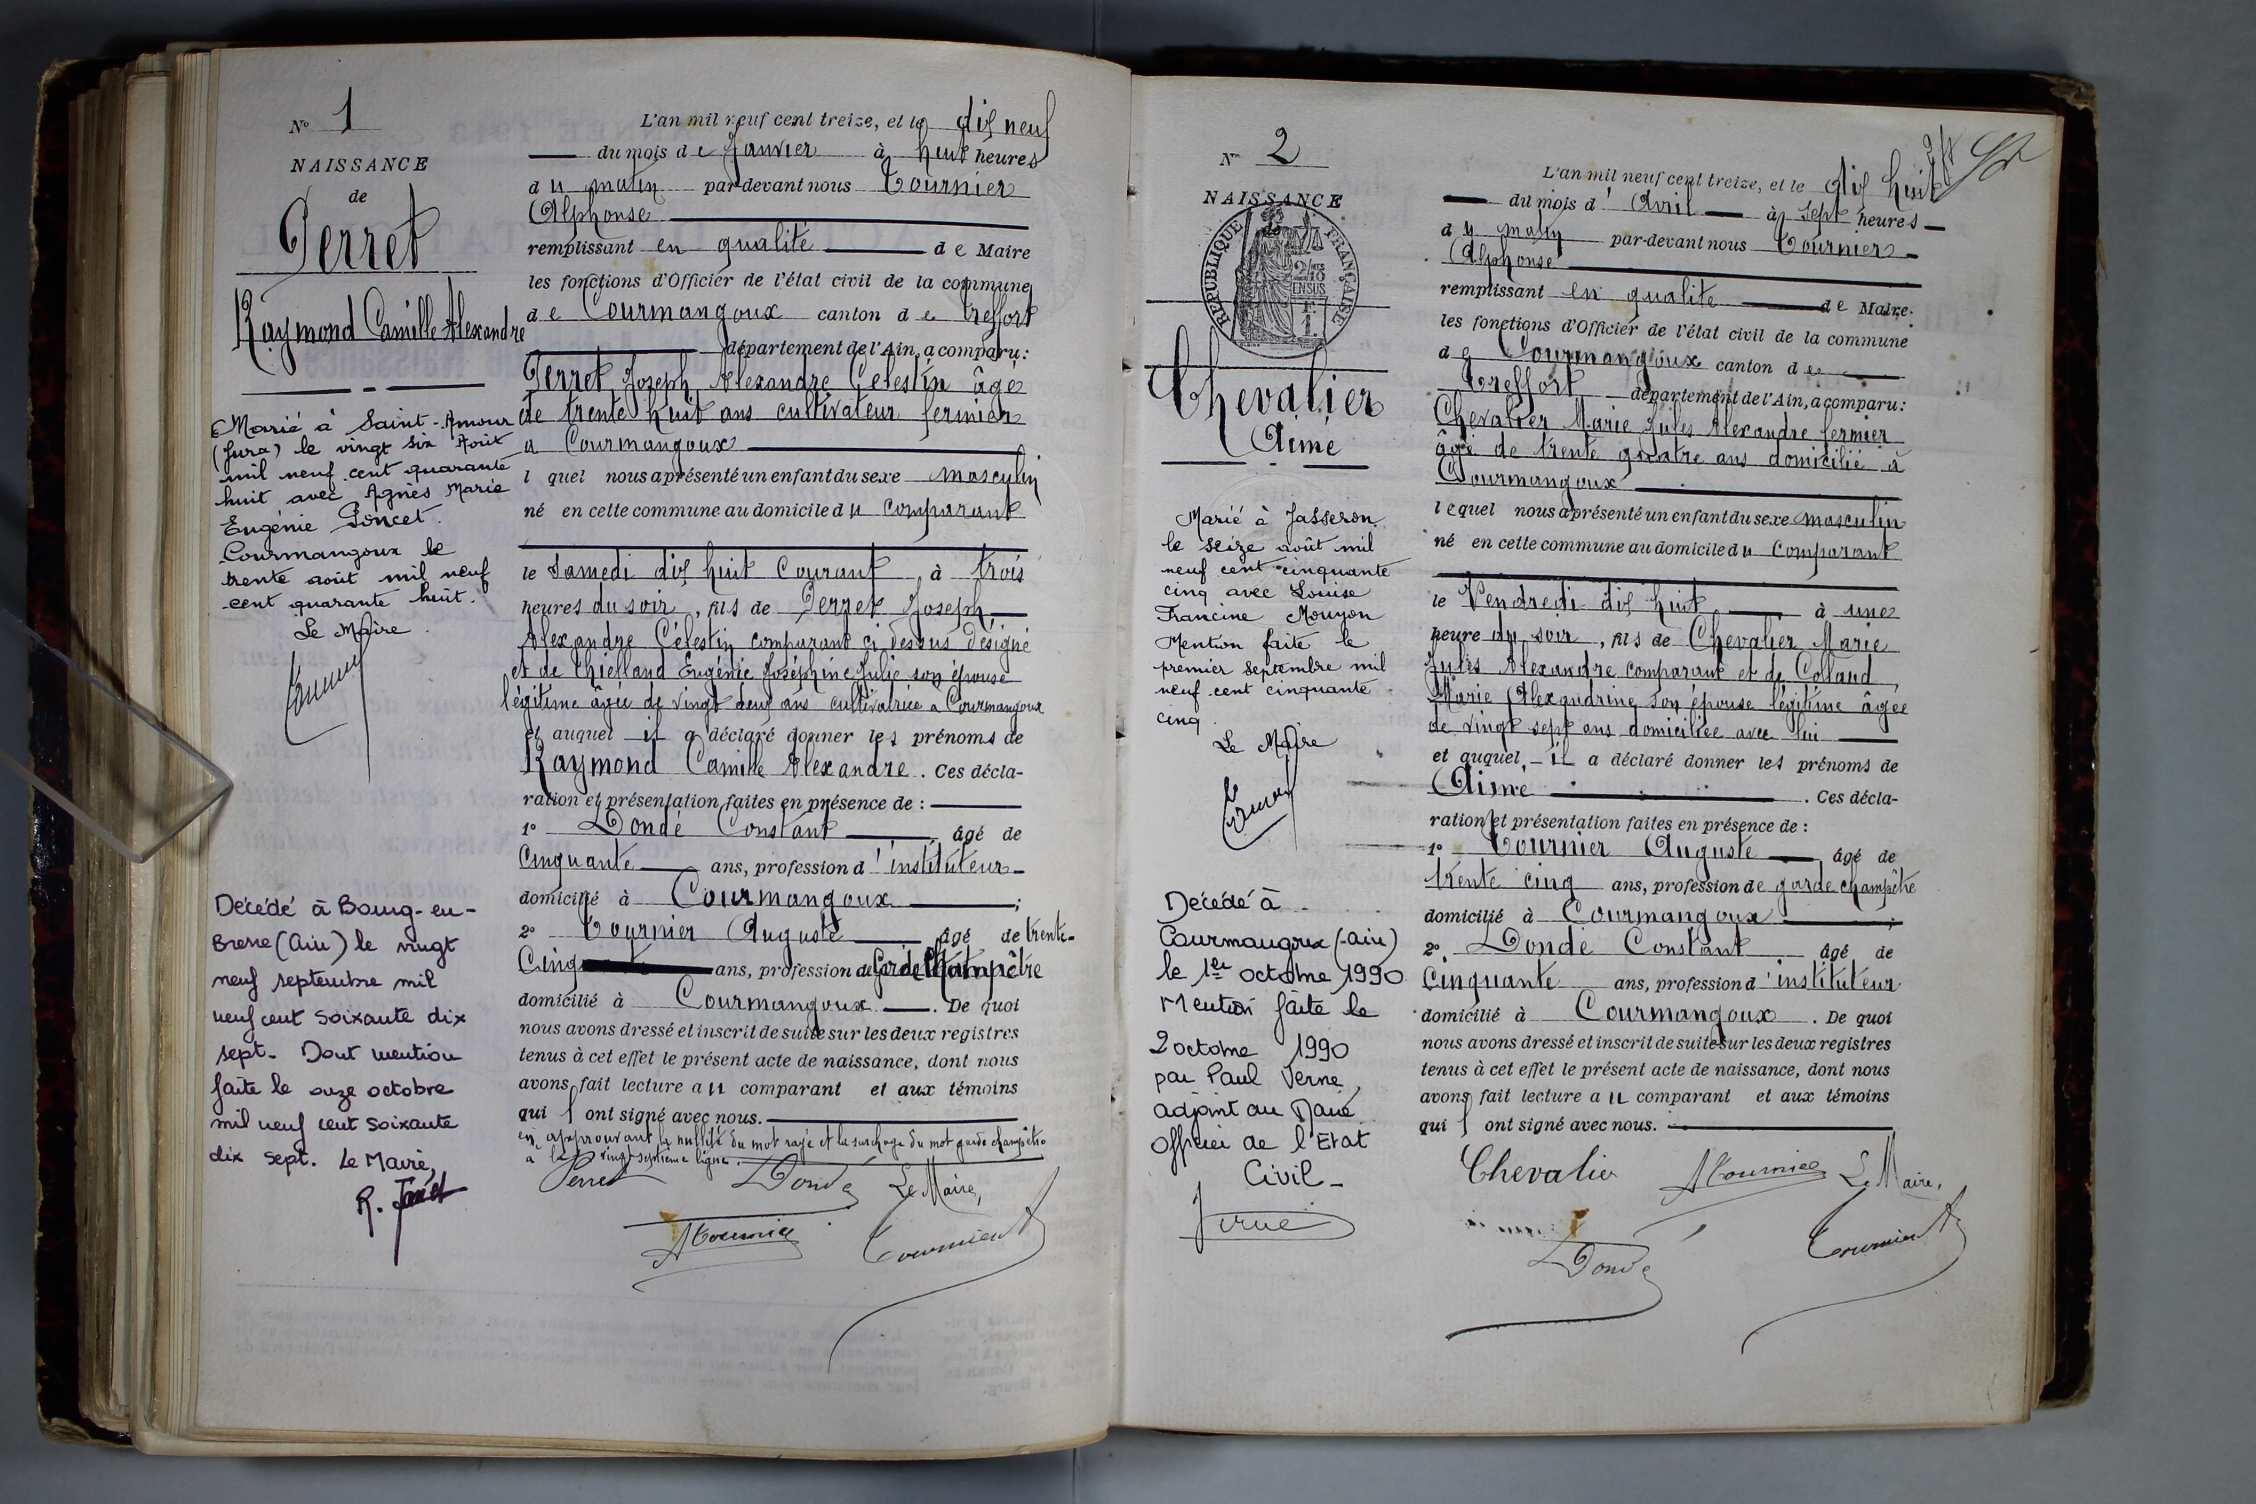 N° 1
NAISSANCE
de
Perret
Raymond Camille Alexandre
Marié à Saint-Amour
(Jura) le vingt six Août
mil neuf cent quarante
huit avec Agnès Marie
Eugénie Poncet.
Courmangoux le
trente août mil neuf
cent quarante huit.
Le Maire
Décédé à Bourg-en-
Bresse (Ain) le vingt
neuf septembre mil
neuf cent soixante dix
sept. Dont mention
faite le onze octobre
mil neuf cent soixante
dix sept. Le Maire,
L'an mil neuf cent treize, et le dix neuf
du mois de Janvier à huit heures
du matin par-devant nous Tournier
Alphonse
remplissant en qualité de Maire
les fonctions d'Officier de l'état civil de la commune
de Courmangoux canton de Treffort
département de l'Ain, a comparu:
Perret Joseph Alexandre Célestin âgé
de trente huit ans cultivateur fermier
a Courmangoux
l quel nous a présenté un enfant du sexe masculin
né en cette commune au domicile du comparant
le Samedi dix huit Courant, à trois
heures du soir, fils de Perret Joseph
Alexandre Célestin comparant ci dessus désigné
et de Eugénie Joséphine Julie son épouse
légitime âgée de vingt deux ans cultivatrice a Courmangoux
et auquel il a déclaré donner les prénoms de
Raymond Camille Alexandre. Ces décla-
ration et présentation faites en présence de :
1° Dondé Constant âgé de
Cinquante ans, profession d'instituteur
domicilié à Courmangoux ;
2° Tournier Auguste âgé de trente-
Cinq ans, profession de Garde Champêtre
domicilié à Courmangoux . De quoi
nous avons dressé et inscrit de suite sur les deux registres
tenus à cet effet le présent acte de naissance, dont nous
avons fait lecture au comparant et aux témoins
qui l ont signé avec nous.
en approuvant la nullité du mot rayé et la surcharge du mot garde champêtre
a la vingt septième ligne.
Perret Dondé Le Maire,
ATournier Tournier A
N° 2
NAISSANCE
RÉPUBLIQUE FRANÇAISE
2/10
EN SUS
Chevalier
Aimé
Marié à Jasseron
le seize août mil
neuf cent cinquante
cinq avec Louise
Francine Mouyon
Mention faite le
premier septembre mil
neuf cent cinquante
cinq.
Le Maire
Décédé à
Courmangoux (Ain)
le 1er octobre 1990
Mention faite le
2 octobre 1990
par Paul Verne,
adjoint au Maire
officier de l'Etat
Civil -
Verne
L'an mil neuf cent treize, et le dix huit
du mois d'Avril à sept heures
du matin par-devant nous Tournier
Alphonse
remplissant en qualité de Maire
les fonctions d'Officier de l'état civil de la commune
de Courmangoux canton de
Treffort département de l'Ain, a comparu:
Chevalier Marie Jules Alexandre fermier
âgé de trente quatre ans domicilié à
Courmangoux
lequel nous a présenté un enfant du sexe masculin
né en cette commune au domicile du comparant
le Vendredi dix huit à une
heure du soir, fils de Chevalier Marie
Jules Alexandre comparant et de Colland
Marie Alexandrine son épouse légitime âgée
de vingt sept ans domiciliée avec lui
et auquel il a déclaré donner les prénoms de
Aimé . Ces décla-
ration et présentation faites en présence de :
1° Tournier Auguste âgé de
trente cinq ans, profession de garde champêtre
domicilié à Courmangoux ;
2° Dondé Constant âgé de
Cinquante ans, profession d'instituteur
domicilié à Courmangoux . De quoi
nous avons dressé et inscrit de suite sur les deux registres
tenus à cet effet le présent acte de naissance, dont nous
avons fait lecture au comparant et aux témoins
qui l ont signé avec nous.
Chevalier ATournier Le Maire,
Dondé Tournier A